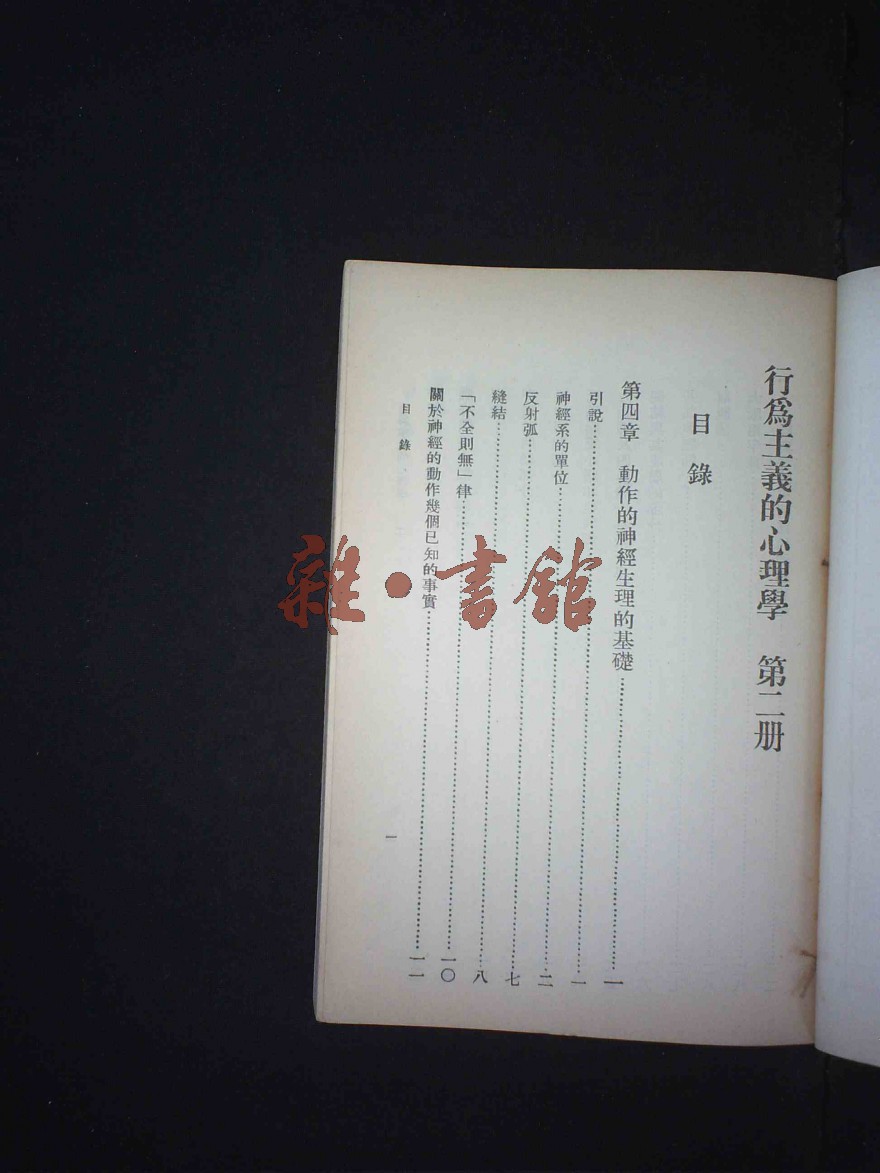 行爲主義的心理學　第二册
目錄
第四章　動作的神經生理的基礎……一
引說……一
神經系的單位……二
反射弧……七
縫結……八
「不全則無」律……一〇
關於神經的動作幾個已知的事實……一一
目錄
一
雜·書館